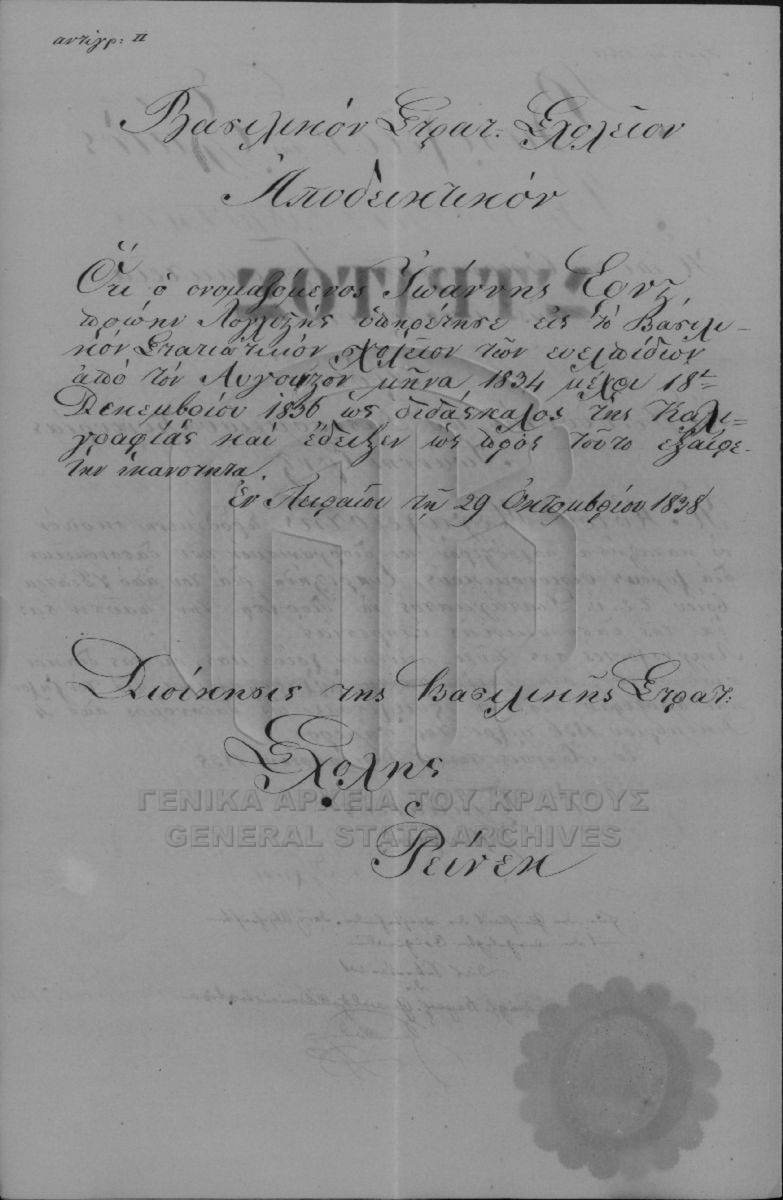 αντιγρ: ΙΙ
Βασιλικόν Στρατ: Σχολεῖον
Ἀποδεικτικόν
Ὅτι ὁ ονομαζόμενος Ἰωάννης Ἔρνζ,
πρώην Λογιςής ὑπηρέτησε εἰς τὸ Βασιλι-
κὸν Στατιωτικόν σχολεῖον τῶν ευελπίδων
ἀπὸ τὸν Αυγουςον μῆνα 1834 μέχρι 18ην
Δεκεμβρίου 1836 ὡς διδάσκαλος τῆς Καλι=
γραφίας καὶ ἔδειξεν ὡς πρὸς τοῦτο εξαίρε-
την ικανοτητα.
Ἐν Πειραίει τῆ 29 Οκτομβρίου 1838
Διοίκησις της Βασιλικῆς Στρατ:
Σχολης
Ρεΐνεκ
ΓΕΝΙΚΑ ΑΡΧΕΙΑ ΤΟΥ ΚΡΑΤΟΥΣ
GENERAL STATE ARCHIVES